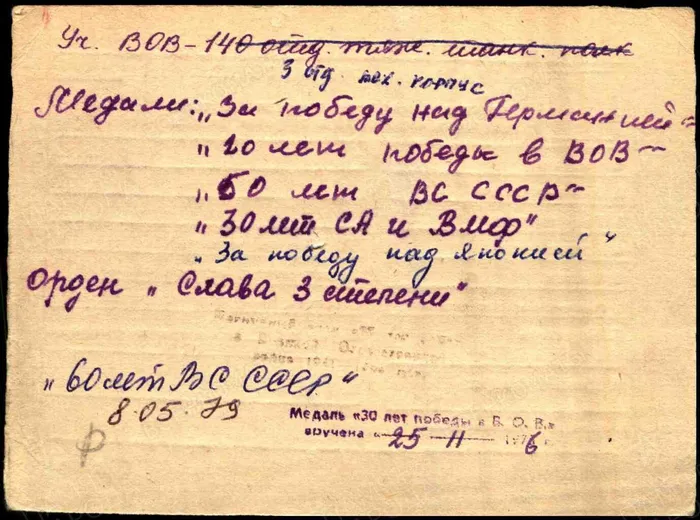 Уч. ВОВ - 140 отд. тяж. танк. полк
3 отд. мех. корпус
Медали: „За победу над Германией"
„20 лет победы в ВОВ"
„50 лет ВС СССР"
„30 лет СА и ВМФ"
„За победу над Японией"
Орден „Слава 3 степени"
„60 лет ВС СССР"
8.05.79
Медаль «30 лет победы в В. О. В.»
вручена «25 - II - 1976 г.